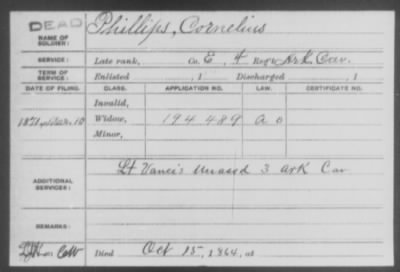 DEAD
NAME OF SOLDIER: Phillips, Cornelius
SERVICE: Late rank, Co. E, 4 Reg't Ark Cav.
TERM OF SERVICE: Enlisted , 1 Discharged , 1
DATE OF FILING. CLASS. APPLICATION NO. LAW. CERTIFICATE NO.
Invalid,
1871, 10 Widow, 194 489
Minor,
Lt Vance's Unassd 3 Ark Cav
ADDITIONAL SERVICES:
REMARKS:
Died Oct 15, 1864, at